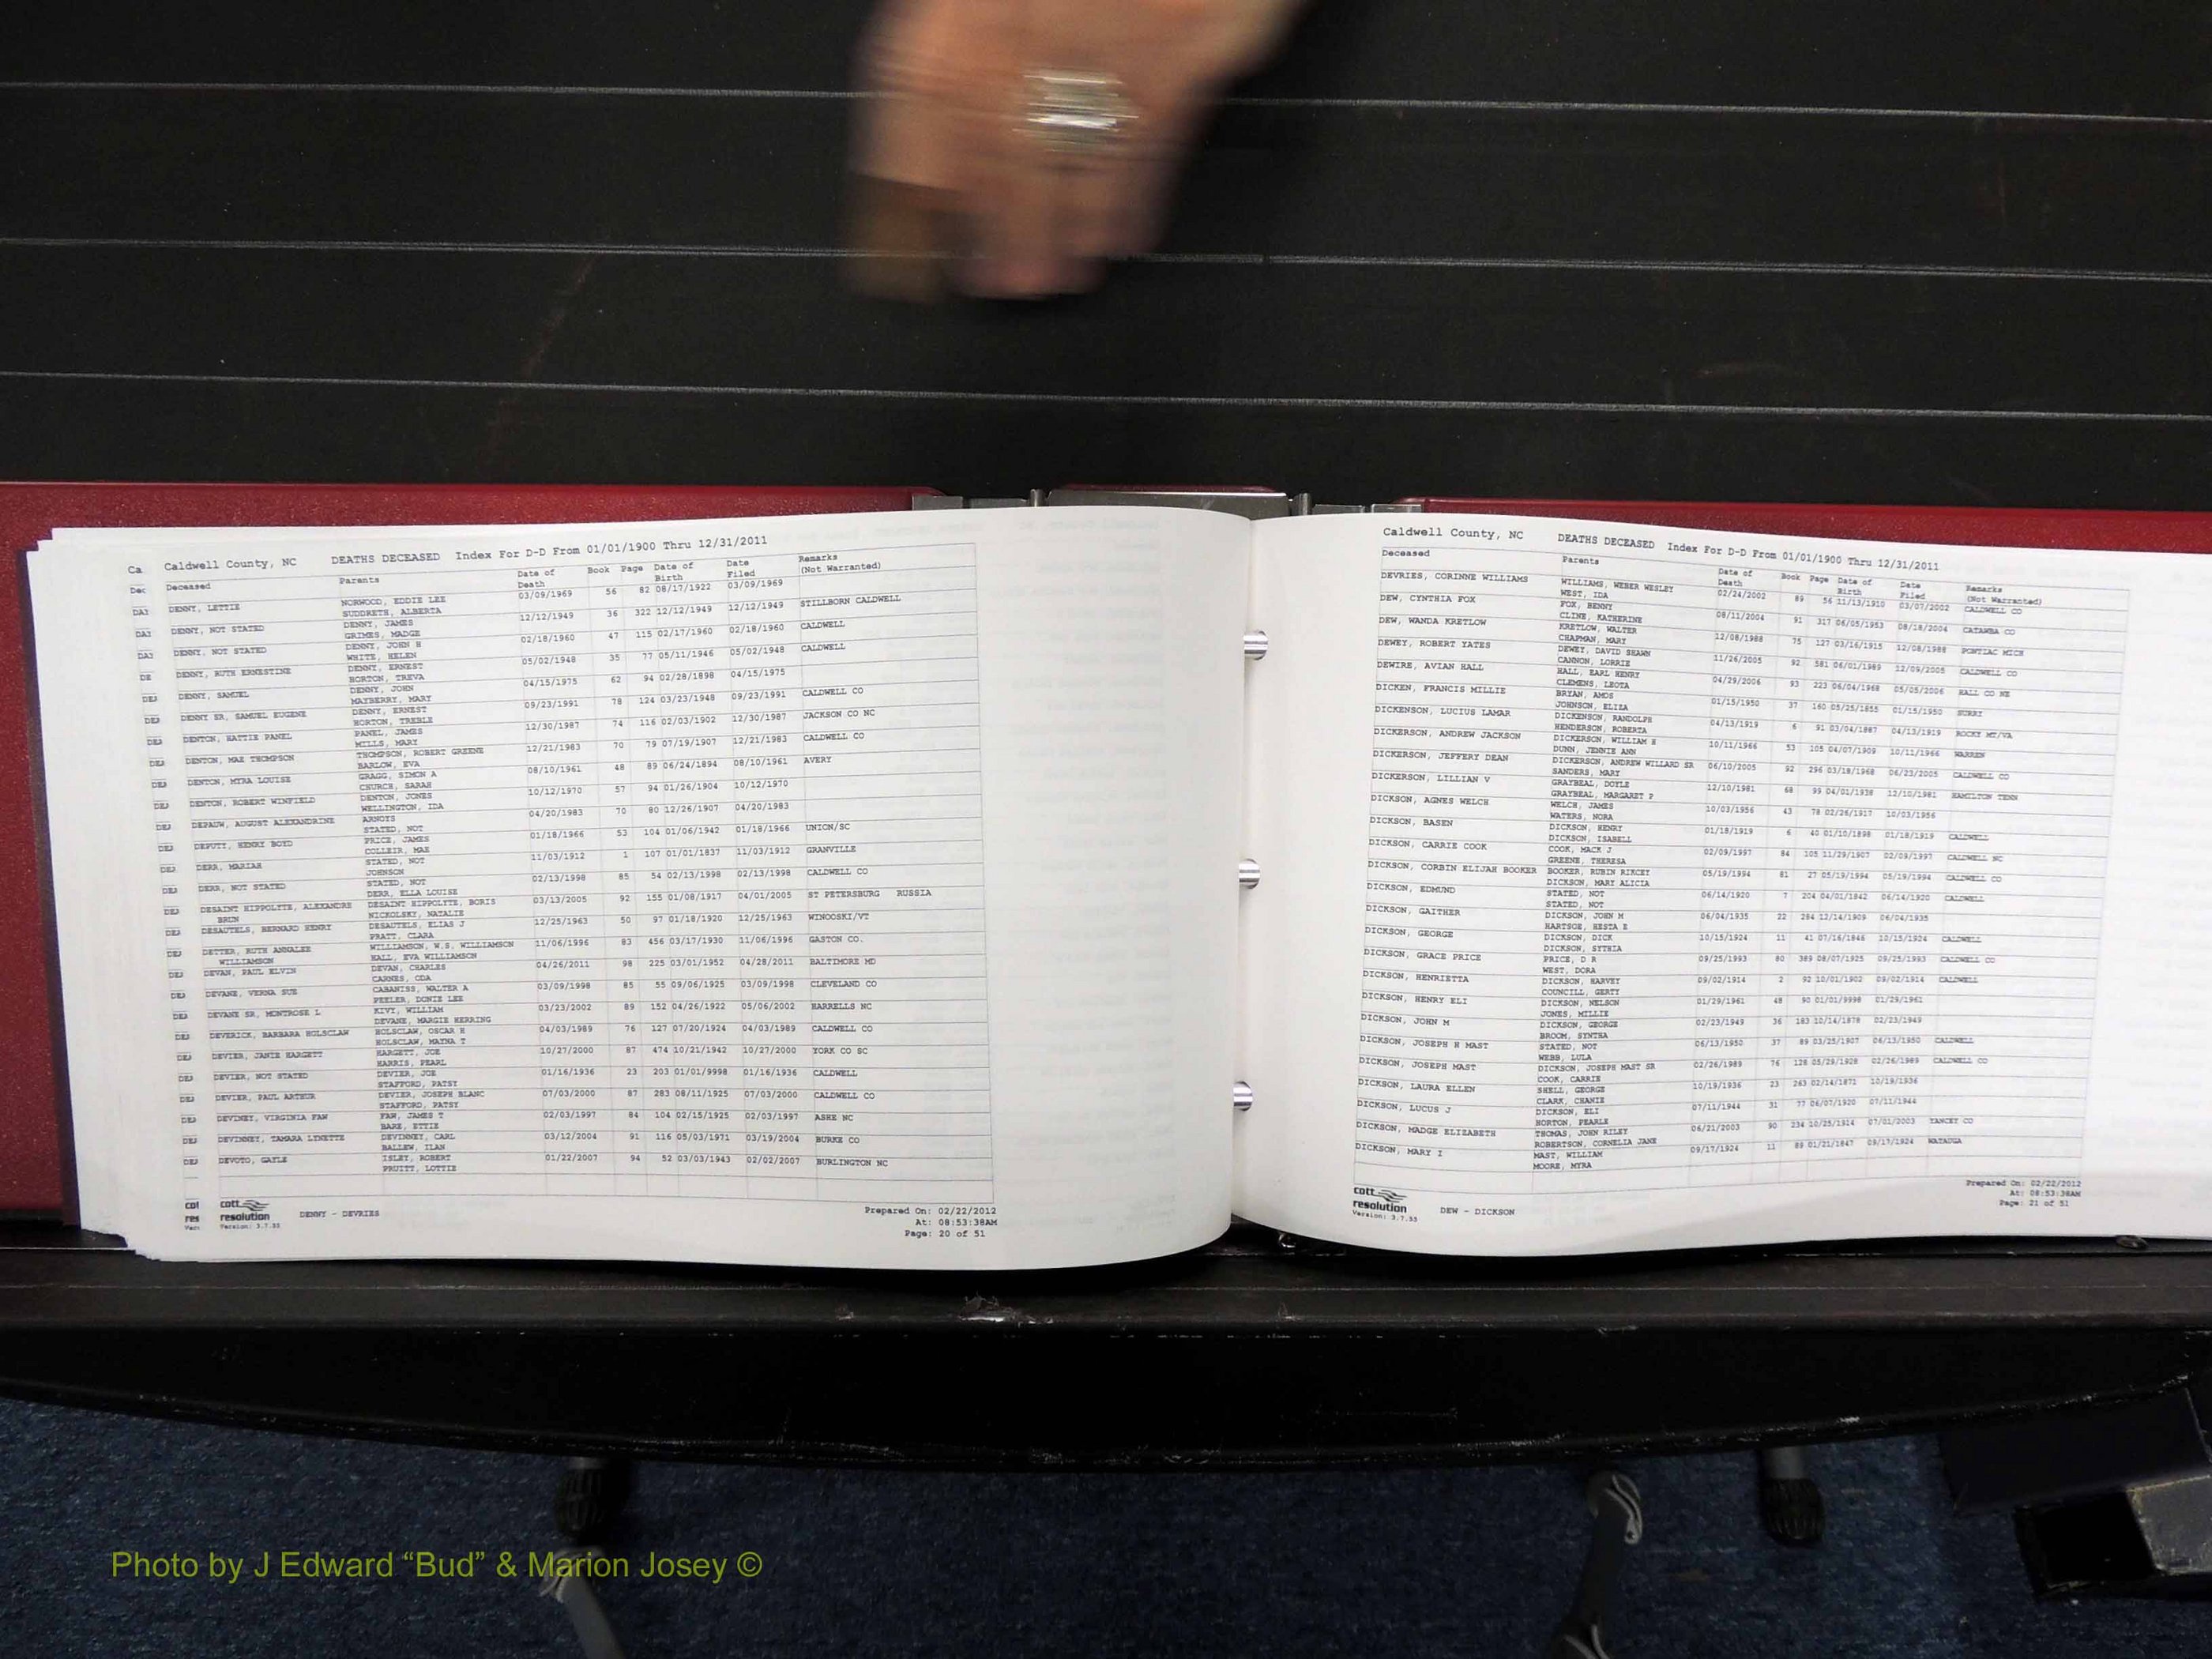 Caldwell County, NC DEATHS DECEASED Index For D-D From 01/01/1900 Thru 12/31/2011
Deceased Parents Date of Death Book Page Date of Birth Date Filed Remarks (Not Warranted)
DENNY, LETTIE NORWOOD, EDDIE LEE 03/09/1969 56 82 08/17/1922 03/09/1969
SUDDRETH, ALBERTA
DENNY, NOT STATED DENNY, JAMES 12/12/1949 36 322 12/12/1949 12/12/1949 STILLBORN CALDWELL
GRIMES, MADGE
DENNY, NOT STATED DENNY, JOHN H 02/18/1960 47 115 02/17/1960 02/18/1960 CALDWELL
WHITE, HELEN
DENNY, RUTH ERNESTINE DENNY, ERNEST 05/02/1948 35 77 05/11/1946 05/02/1948 CALDWELL
HORTON, TREVA
DENNY, SAMUEL DENNY, JOHN 04/15/1975 62 94 02/28/1898 04/15/1975
MAYBERRY, MARY
DENNY SR, SAMUEL EUGENE DENNY, ERNEST 09/23/1991 78 124 03/23/1948 09/23/1991 CALDWELL CO
HORTON, TREBLE
DENTON, HATTIE PANEL PANEL, JAMES 12/30/1987 74 116 02/03/1902 12/30/1987 JACKSON CO NC
MILLS, MARY
DENTON, MAE THOMPSON THOMPSON, ROBERT GREENE 12/21/1983 70 79 07/19/1907 12/21/1983 CALDWELL CO
BARLOW, EVA
DENTON, MYRA LOUISE GRAGG, SIMON A 08/10/1961 48 89 06/24/1894 08/10/1961 AVERY
CHURCH, SARAH
DENTON, ROBERT WINFIELD DENTON, JONES 10/12/1970 57 94 01/26/1904 10/12/1970
WELLINGTON, IDA
DEPAUW, AUGUST ALEXANDRINE ARNOYS 04/20/1983 70 80 12/26/1907 04/20/1983
STATED, NOT
DEPUTT, HENRY BOYD PRICE, JAMES 01/18/1966 53 104 01/06/1942 01/18/1966 UNION/SC
COLLEIR, MAE
DERR, MARIAH STATED, NOT 11/03/1912 1 107 01/01/1837 11/03/1912 GRANVILLE
JOHNSON
DERR, NOT STATED STATED, NOT 02/13/1998 85 54 02/13/1998 02/13/1998 CALDWELL CO
DERR, ELLA LOUISE
DESAINT HIPPOLYTE, ALEXANDRE DESAINT HIPPOLYTE, BORIS 03/13/2005 92 155 01/08/1917 04/01/2005 ST PETERSBURG RUSSIA
BRUN NICKOLSKY, NATALIE
DESAUTELS, BERNARD HENRY DESAUTELS, ELIAS J 12/25/1963 50 97 01/18/1920 12/25/1963 WINOOSKI/VT
PRATT, CLARA
DETTER, RUTH ANNALEE WILLIAMSON, W.S. WILLIAMSON 11/06/1996 83 456 03/17/1930 11/06/1996 GASTON CO.
WILLIAMSON HALL, EVA WILLIAMSON
DEVAN, PAUL ELVIN DEVAN, CHARLES 04/26/2011 98 225 03/01/1952 04/28/2011 BALTIMORE MD
CARNES, CDA
DEVANE, VERNA SUE CABANISS, WALTER A 03/09/1998 85 55 09/06/1925 03/09/1998 CLEVELAND CO
PEELER, DONIE LEE
DEVANE SR, MONTROSE L KIVY, WILLIAM 03/23/2002 89 152 04/26/1922 05/06/2002 HARRELLS NC
DEVANE, MARGIE HERRING
DEVERICK, BARBARA HOLSCLAW HOLSCLAW, OSCAR H 04/03/1989 76 127 07/20/1924 04/03/1989 CALDWELL CO
HOLSCLAW, MAYNA T
DEVIER, JANIE HARGETT HARGETT, JOE 10/27/2000 87 474 10/21/1942 10/27/2000 YORK CO SC
HARRIS, PEARL
DEVIER, NOT STATED DEVIER, JOE 01/16/1936 23 203 01/01/9998 01/16/1936 CALDWELL
STAFFORD, PATSY
DEVIER, PAUL ARTHUR DEVIER, JOSEPH BLANC 07/03/2000 87 283 08/11/1925 07/03/2000 CALDWELL CO
STAFFORD, PATSY
DEVINEY, VIRGINIA FAW FAW, JAMES T 02/03/1997 84 104 02/15/1925 02/03/1997 ASHE NC
BARE, ETTIE
DEVINNEY, TAMARA LYNETTE DEVINNEY, CARL 03/12/2004 91 116 05/03/1971 03/19/2004 BURKE CO
BALLEW, ILAN
DEVOTO, GAYLE ISLEY, ROBERT 01/22/2007 94 52 03/03/1943 02/02/2007 BURLINGTON NC
PRUITT, LOTTIE
cott
resolution DENNY - DEVRIES
Version: 3.7.55
Prepared On: 02/22/2012
At: 08:53:38AM
Page: 20 of 51
Caldwell County, NC DEATHS DECEASED Index For D-D From 01/01/1900 Thru 12/31/2011
Deceased Parents Date of Death Book Page Date of Birth Date Filed Remarks (Not Warranted)
DEVRIES, CORINNE WILLIAMS WILLIAMS, WEBER WESLEY 02/24/2002 89 56 11/13/1910 03/07/2002 CALDWELL CO
WEST, IDA
DEW, CYNTHIA FOX FOX, BENNY 08/11/2004 91 317 06/05/1953 08/18/2004 CATAWBA CO
CLINE, KATHERINE
DEW, WANDA KRETLOW KRETLOW, WALTER 12/08/1988 75 127 03/16/1915 12/08/1988 PONTIAC MICH
CHAPMAN, MARY
DEWEY, ROBERT YATES DEWEY, DAVID SHAWN 11/26/2005 92 581 06/01/1989 12/09/2005 CALDWELL CO
CANNON, LORRIE
DEWIRE, AVIAN HALL HALL, EARL HENRY 04/29/2006 93 223 06/04/1968 05/05/2006 HALL CO NE
CLEMENS, LEOTA
DICKEN, FRANCIS MILLIE BRYAN, AMOS 01/15/1950 37 160 05/25/1855 01/15/1950 SURRY
JOHNSON, ELIZA
DICKENSON, LUCIUS LAMAR DICKENSON, RANDOLPH 04/13/1919 6 91 03/04/1887 04/13/1919 ROCKY MT/VA
HENDERSON, ROBERTA
DICKERSON, ANDREW JACKSON DICKERSON, WILLIAM H 10/11/1966 53 105 04/07/1909 10/11/1966 WARREN
DUNN, JENNIE ANN
DICKERSON, JEFFERY DEAN DICKERSON, ANDREW WILLARD SR 06/10/2005 92 296 03/18/1968 06/23/2005 CALDWELL CO
SANDERS, MARY
DICKERSON, LILLIAN V GRAYBEAL, DOYLE 12/10/1981 68 99 04/01/1938 12/10/1981 HAMILTON TENN
GRAYBEAL, MARGARET P
DICKSON, AGNES WELCH WELCH, JAMES 10/03/1956 43 78 02/26/1917 10/03/1956
WATERS, NORA
DICKSON, BASEN DICKSON, HENRY 01/18/1919 6 40 01/10/1898 01/18/1919 CALDWELL
DICKSON, ISABELL
DICKSON, CARRIE COOK COOK, MACK J 02/09/1997 84 105 11/29/1907 02/09/1997 CALDWELL NC
GREENE, THERESA
DICKSON, CORBIN ELIJAH BOOKER BOOKER, RUBIN RIKCEY 05/19/1994 81 27 05/19/1994 05/19/1994 CALDWELL CO
DICKSON, MARY ALICIA
DICKSON, EDMUND STATED, NOT 06/14/1920 7 204 04/01/1842 06/14/1920 CALDWELL
STATED, NOT
DICKSON, GAITHER DICKSON, JOHN M 06/04/1935 22 284 12/14/1909 06/04/1935
HARTSOE, HESTA E
DICKSON, GEORGE DICKSON, DICK 10/15/1924 11 41 07/16/1846 10/15/1924 CALDWELL
DICKSON, SYTHIA
DICKSON, GRACE PRICE PRICE, D R 09/25/1993 80 389 08/07/1925 09/25/1993 CALDWELL CO
WEST, DORA
DICKSON, HENRIETTA DICKSON, HARVEY 09/02/1914 2 92 10/01/1902 09/02/1914 CALDWELL
COUNCILL, GERTY
DICKSON, HENRY ELI DICKSON, NELSON 01/29/1961 48 90 01/01/9998 01/29/1961
JONES, MILLIE
DICKSON, JOHN M DICKSON, GEORGE 02/23/1949 36 183 10/14/1878 02/23/1949
BROOM, SYNTHA
DICKSON, JOSEPH H MAST STATED, NOT 06/13/1950 37 89 03/25/1907 06/13/1950 CALDWELL
WEBB, LULA
DICKSON, JOSEPH MAST DICKSON, JOSEPH MAST SR 02/26/1989 76 128 05/29/1928 02/26/1989 CALDWELL CO
COOK, CARRIE
DICKSON, LAURA ELLEN SHELL, GEORGE 10/19/1936 23 263 02/14/1871 10/19/1936
CLARK, CHANIE
DICKSON, LUCUS J DICKSON, ELI 07/11/1944 31 77 06/07/1920 07/11/1944
HORTON, PEARLE
DICKSON, MADGE ELIZABETH THOMAS, JOHN RILEY 06/21/2003 90 234 10/25/1914 07/01/2003 YANCEY CO
ROBERTSON, CORNELIA JANE
DICKSON, MARY I MAST, WILLIAM 09/17/1924 11 89 01/21/1847 09/17/1924 WATAUGA
MOORE, MYRA
cott
resolution DEW - DICKSON
Version: 3.7.55
Prepared On: 02/22/2012
At: 08:53:38AM
Page: 21 of 51
Photo by J Edward “Bud” & Marion Josey ©